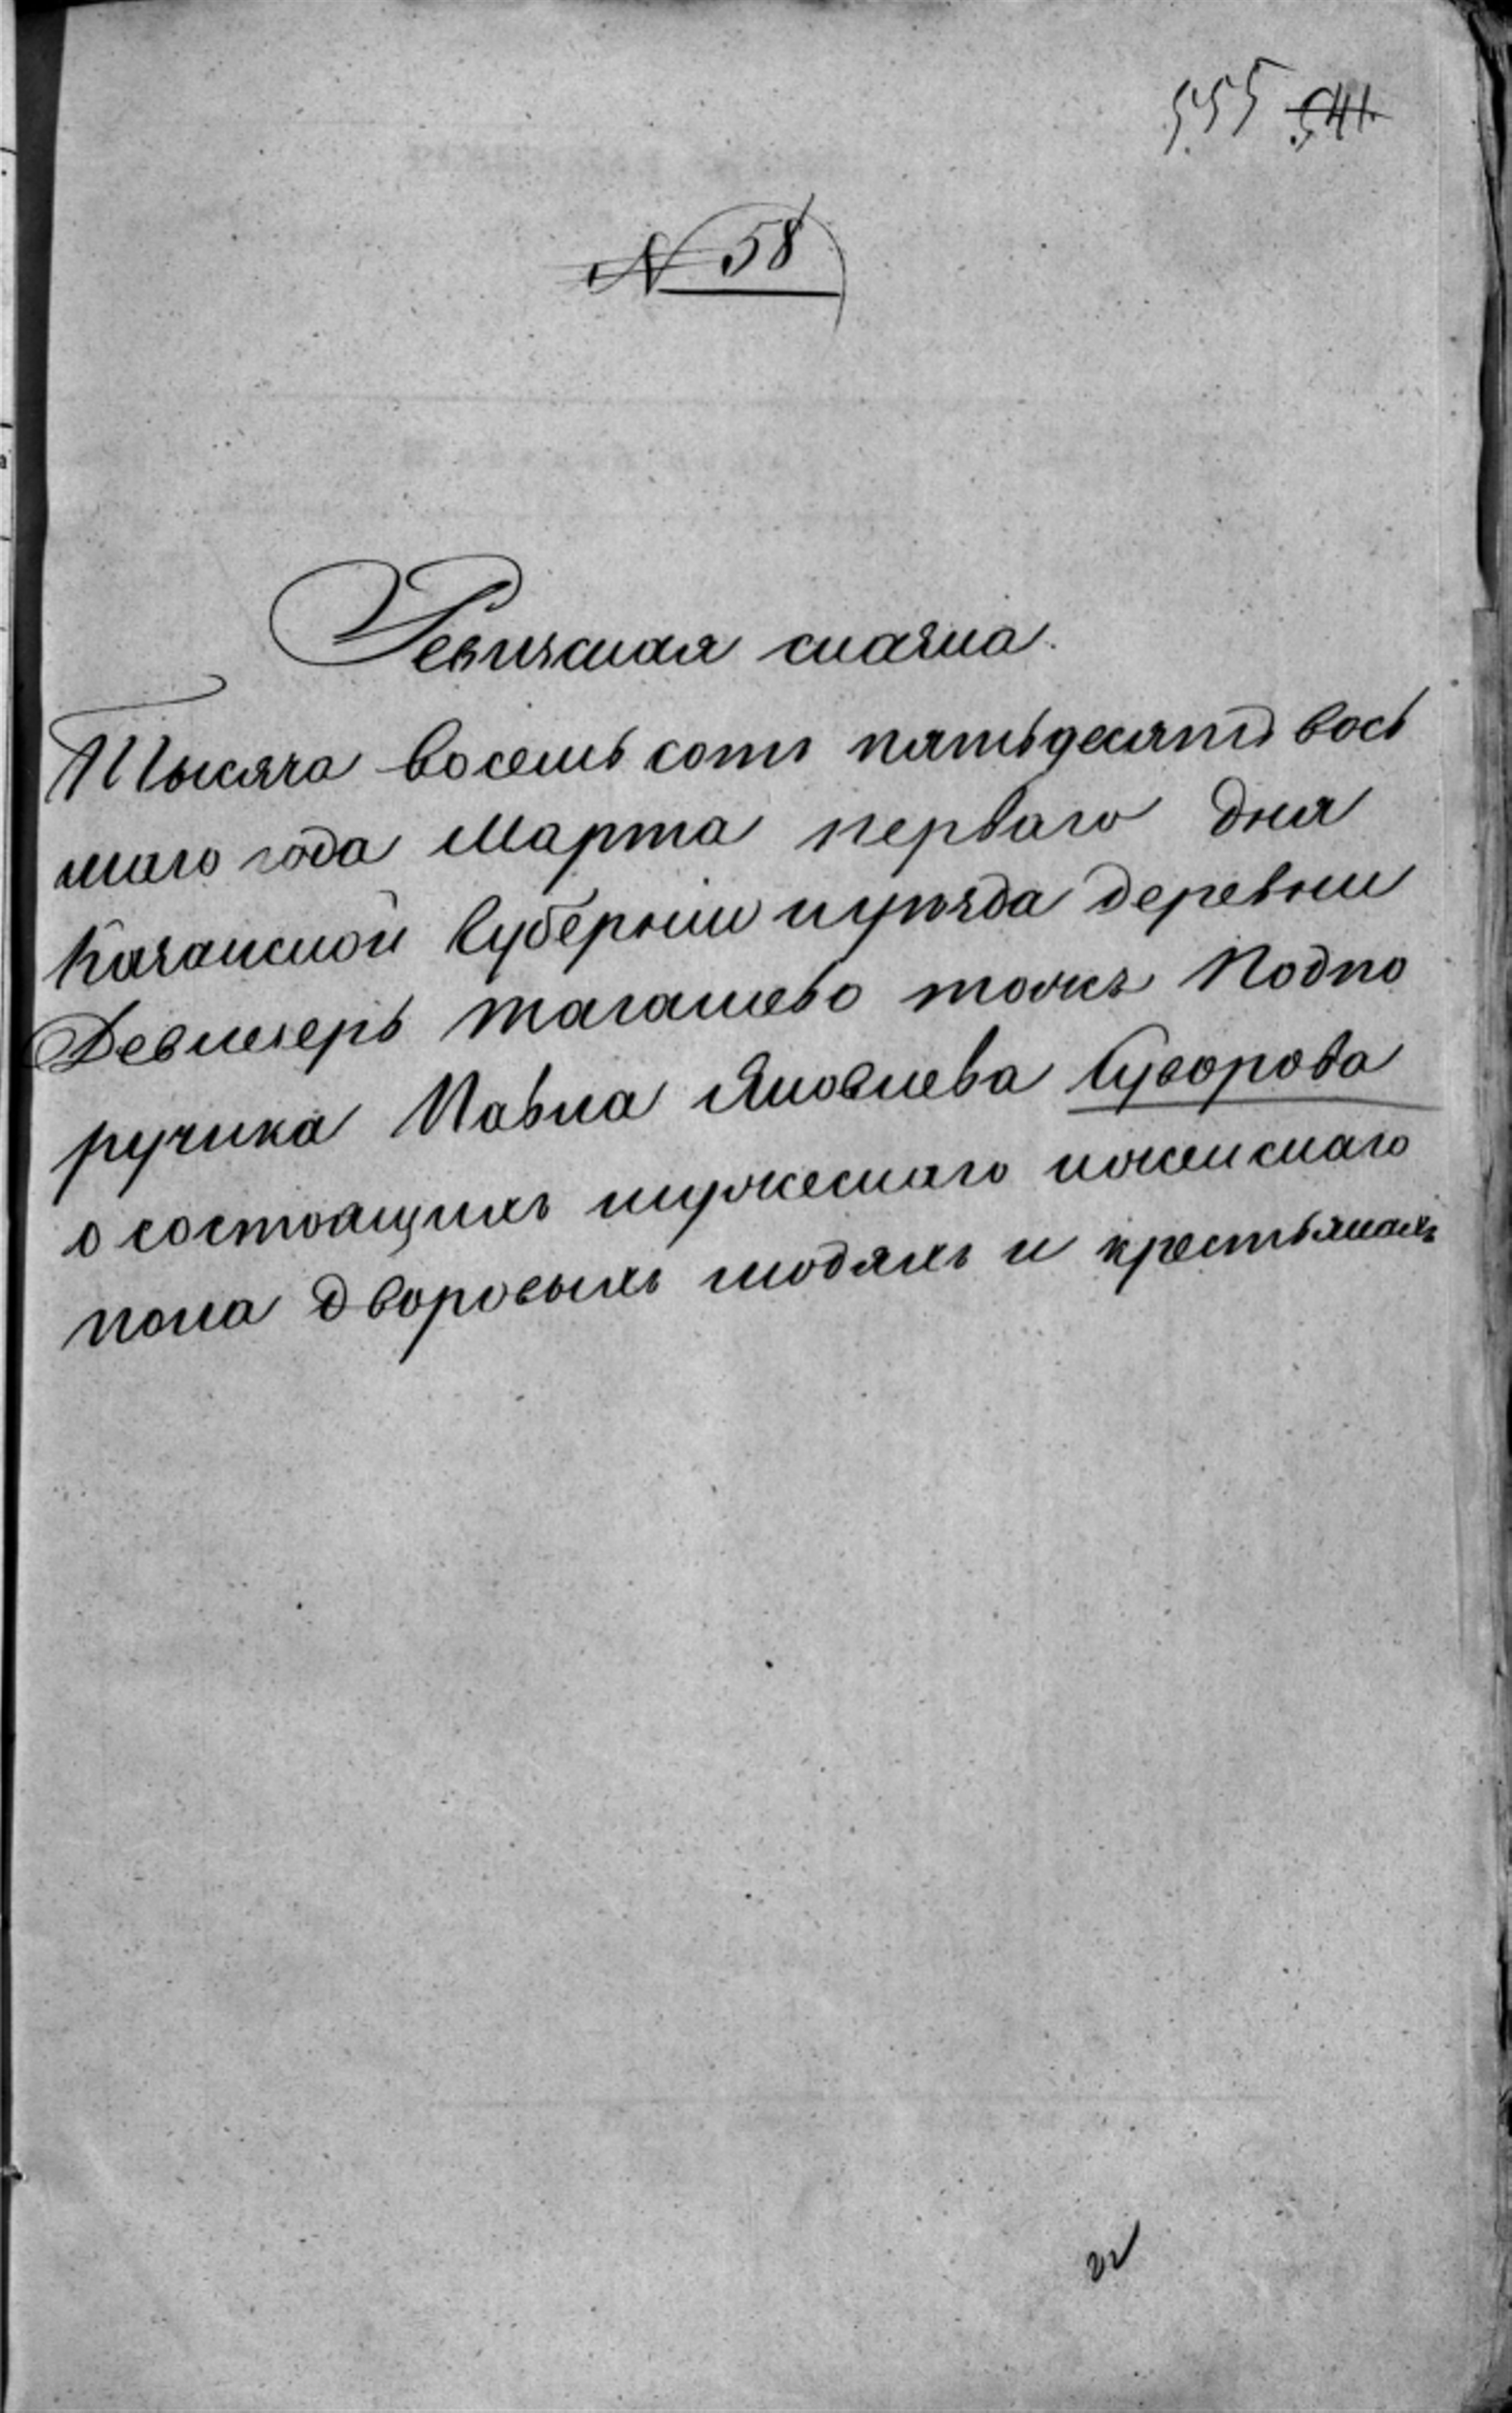 555 541
N 58
Ревизская сказка.
Тысяча восемь сотъ пятьдесятъ вось
маго года Марта перваго дня
Казанской Губерніи иуѣзда деревни
Девликерь тагашево тожъ Подпо
ручика Павла Яковлева Суворова
о состоящихъ мужескаго иженскаго
пола дворовыхъ людяхъ и крестьянахъ